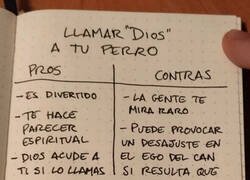 LLAMAR "DIOS"
A TU PERRO
PROS
- ES DIVERTIDO
- TE HACE
PARECER
ESPIRITUAL
- DIOS ACUDE A
TI SI LO LLAMAS
CONTRAS
- LA GENTE TE
MIRA RARO
- PUEDE PROVOCAR
UN DESAJUSTE EN
EL EGO DEL CAN
SI RESULTA QUE